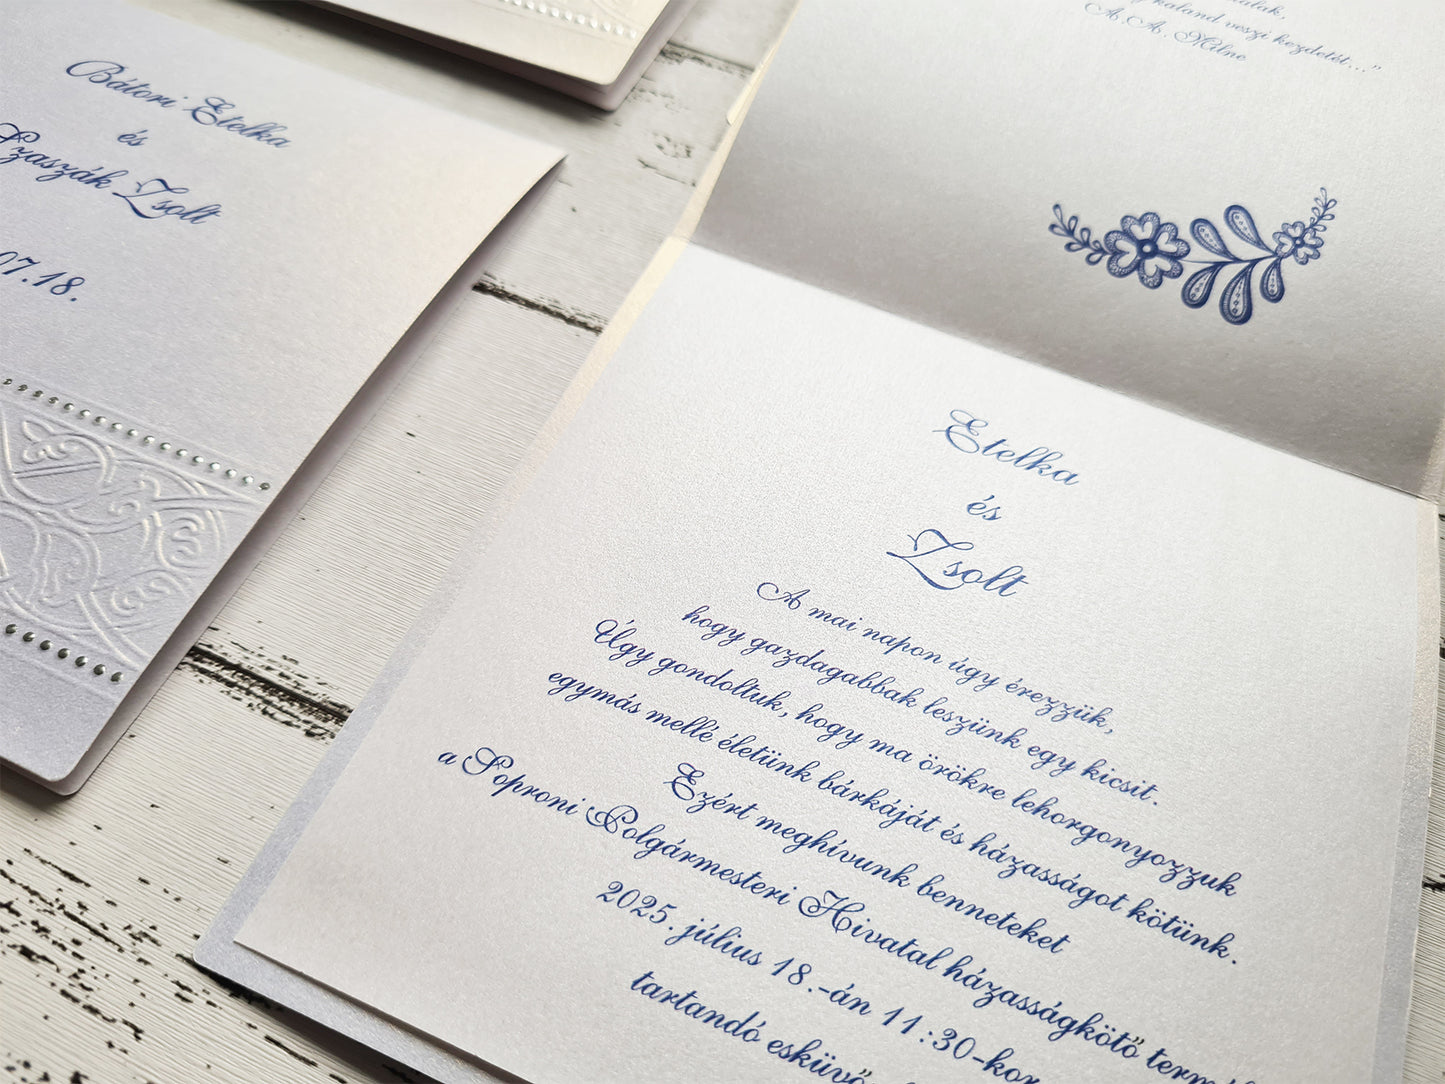 Bátori Etelka
és
Szaszák Zsolt
07.18.
kaland veszi kezdetét..."
A. A. Milne
Etelka
és
Zsolt
A mai napon úgy érezzük,
hogy gazdagabbak leszünk egy kicsit.
Úgy gondoltuk, hogy ma örökre lehorgonyozzuk
egymás mellé életünk bárkáját és házasságot kötünk.
Ezért meghívunk benneteket
a Soproni Polgármesteri Hivatal házasságkötő
2025. július 18.-án 11:30-kor
tartandó